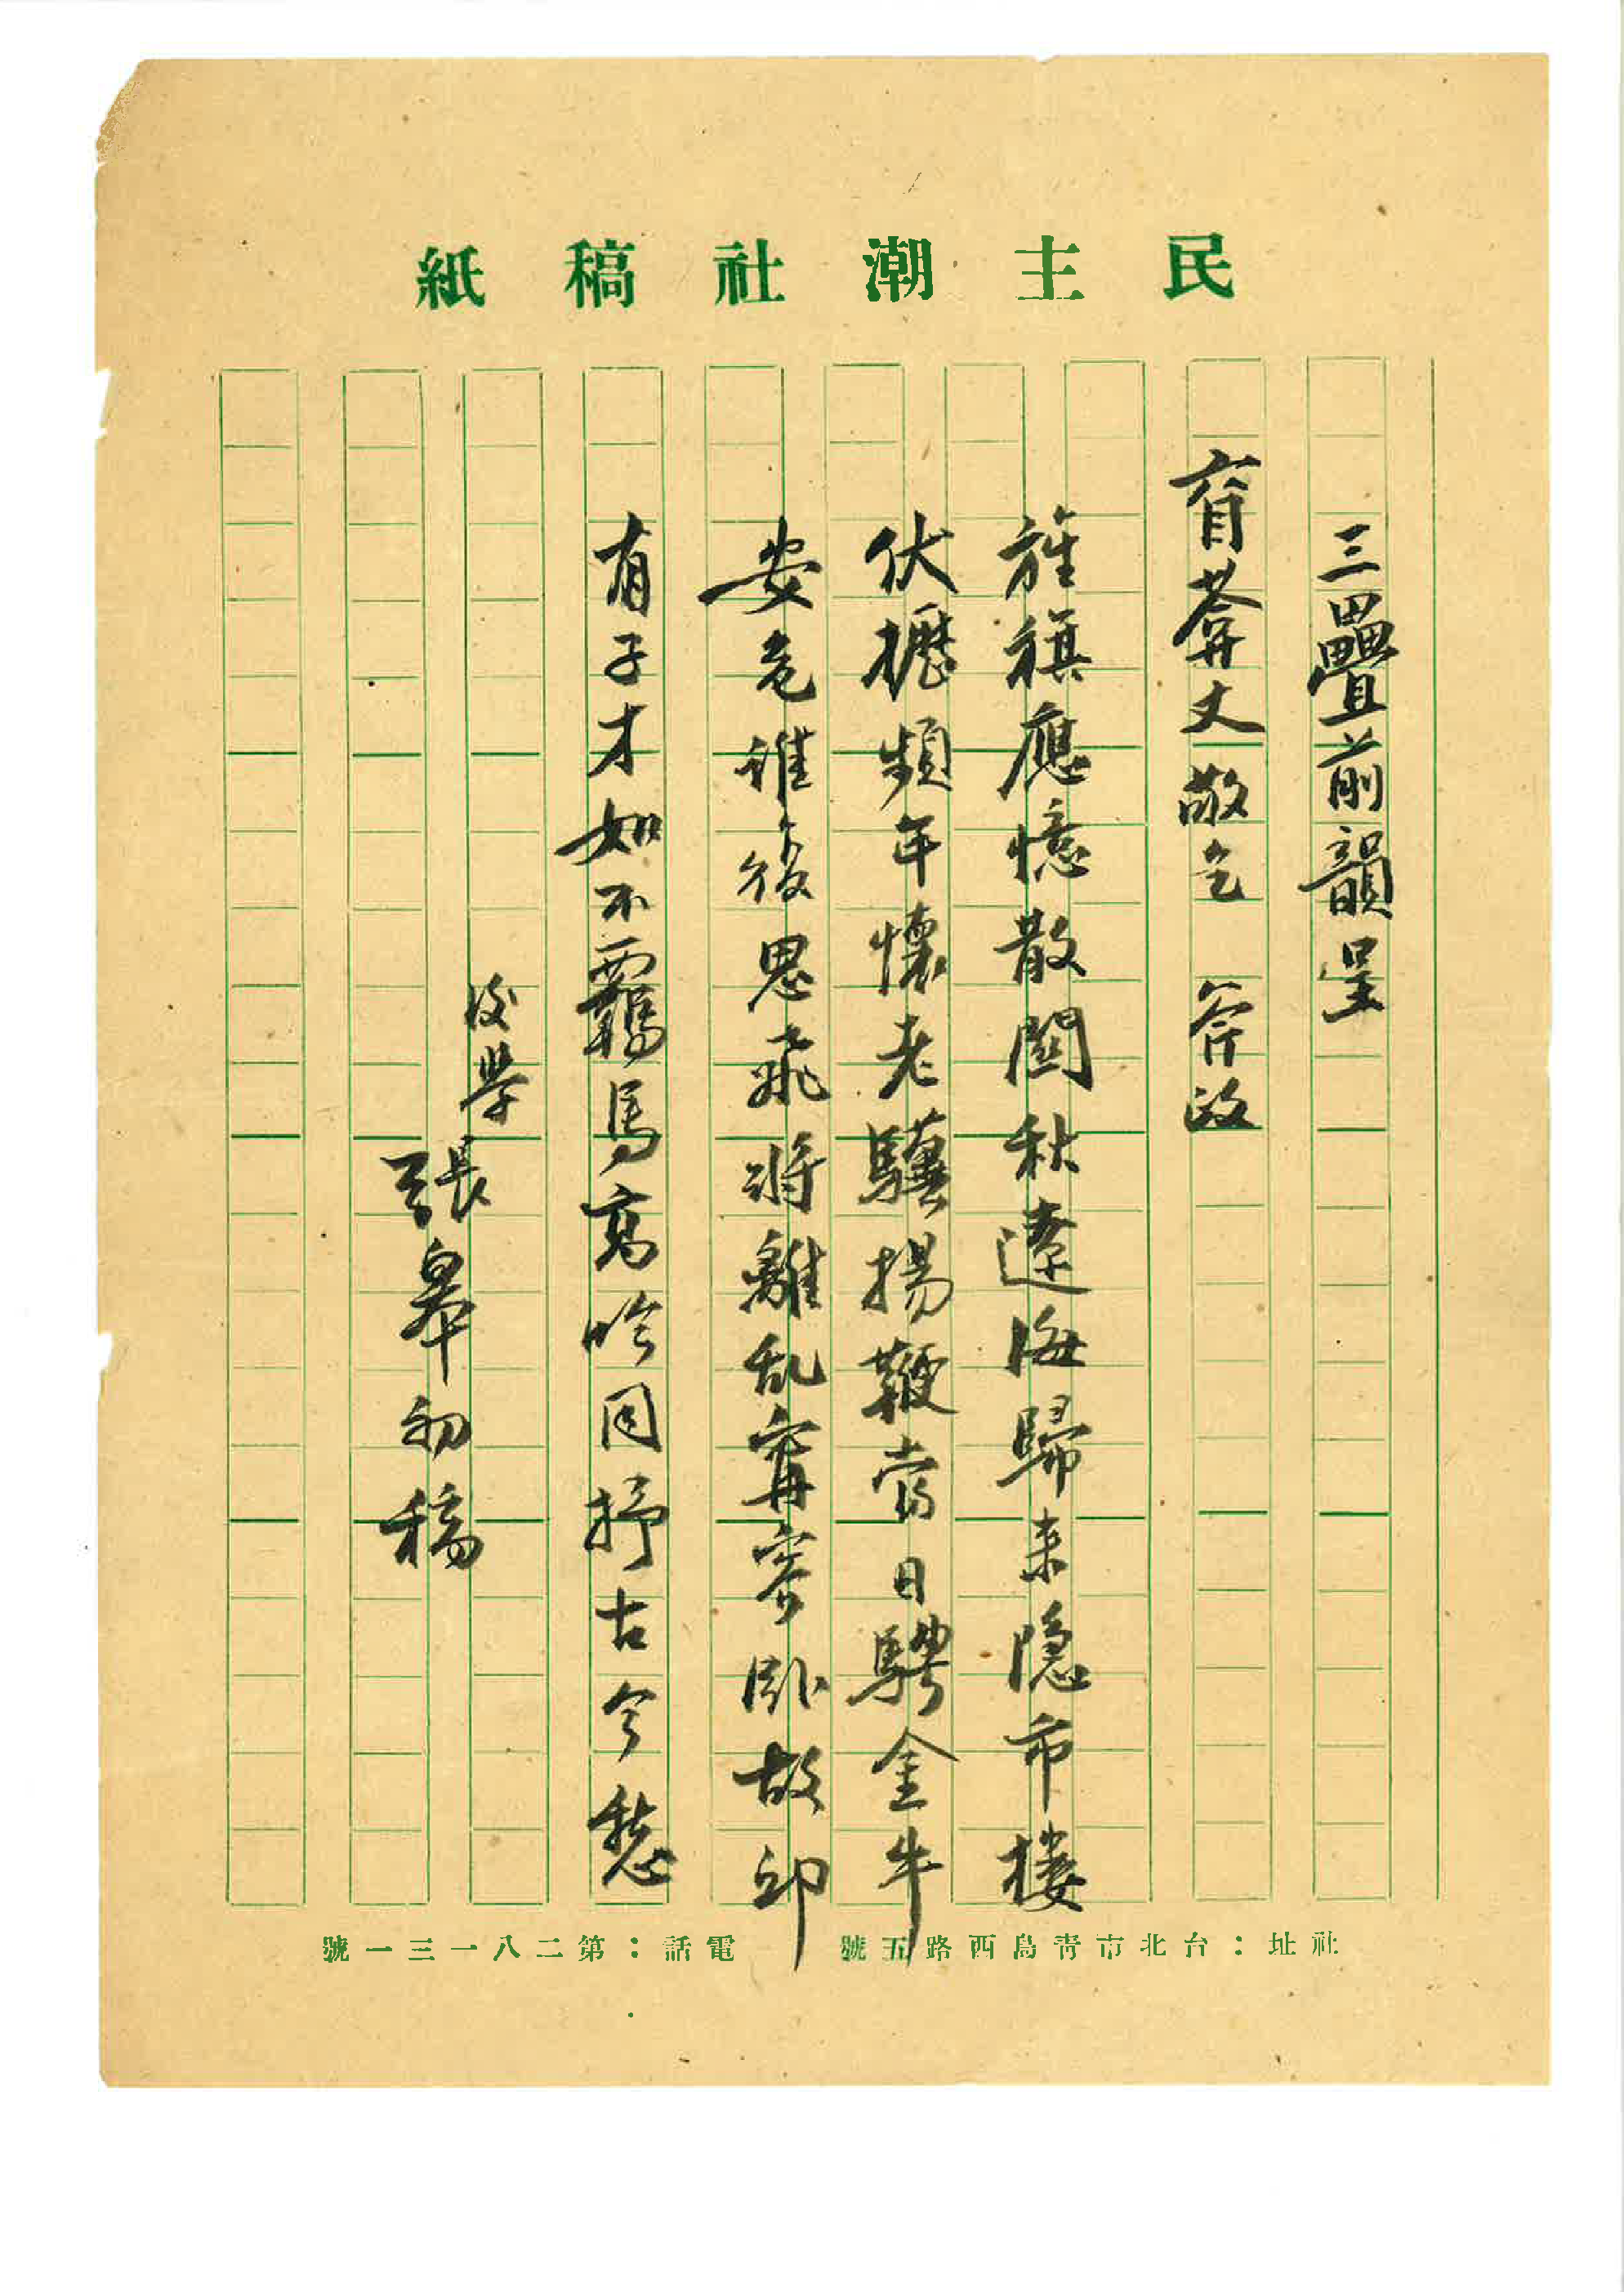 民主潮社稿紙
三疊前韻呈
眘葊丈敬乞 斧政
旌旗應憶散關秋遼海歸来隱市樓
伏櫪頻年懷老驥揚鞭當日騁金牛
安危誰復思飛將離乱寧容臥故邱
有子才如不羈馬高吟同抒古今愁
後學
張皋初稿
社址：台北市青島西路五號 電話：第二八一三一號